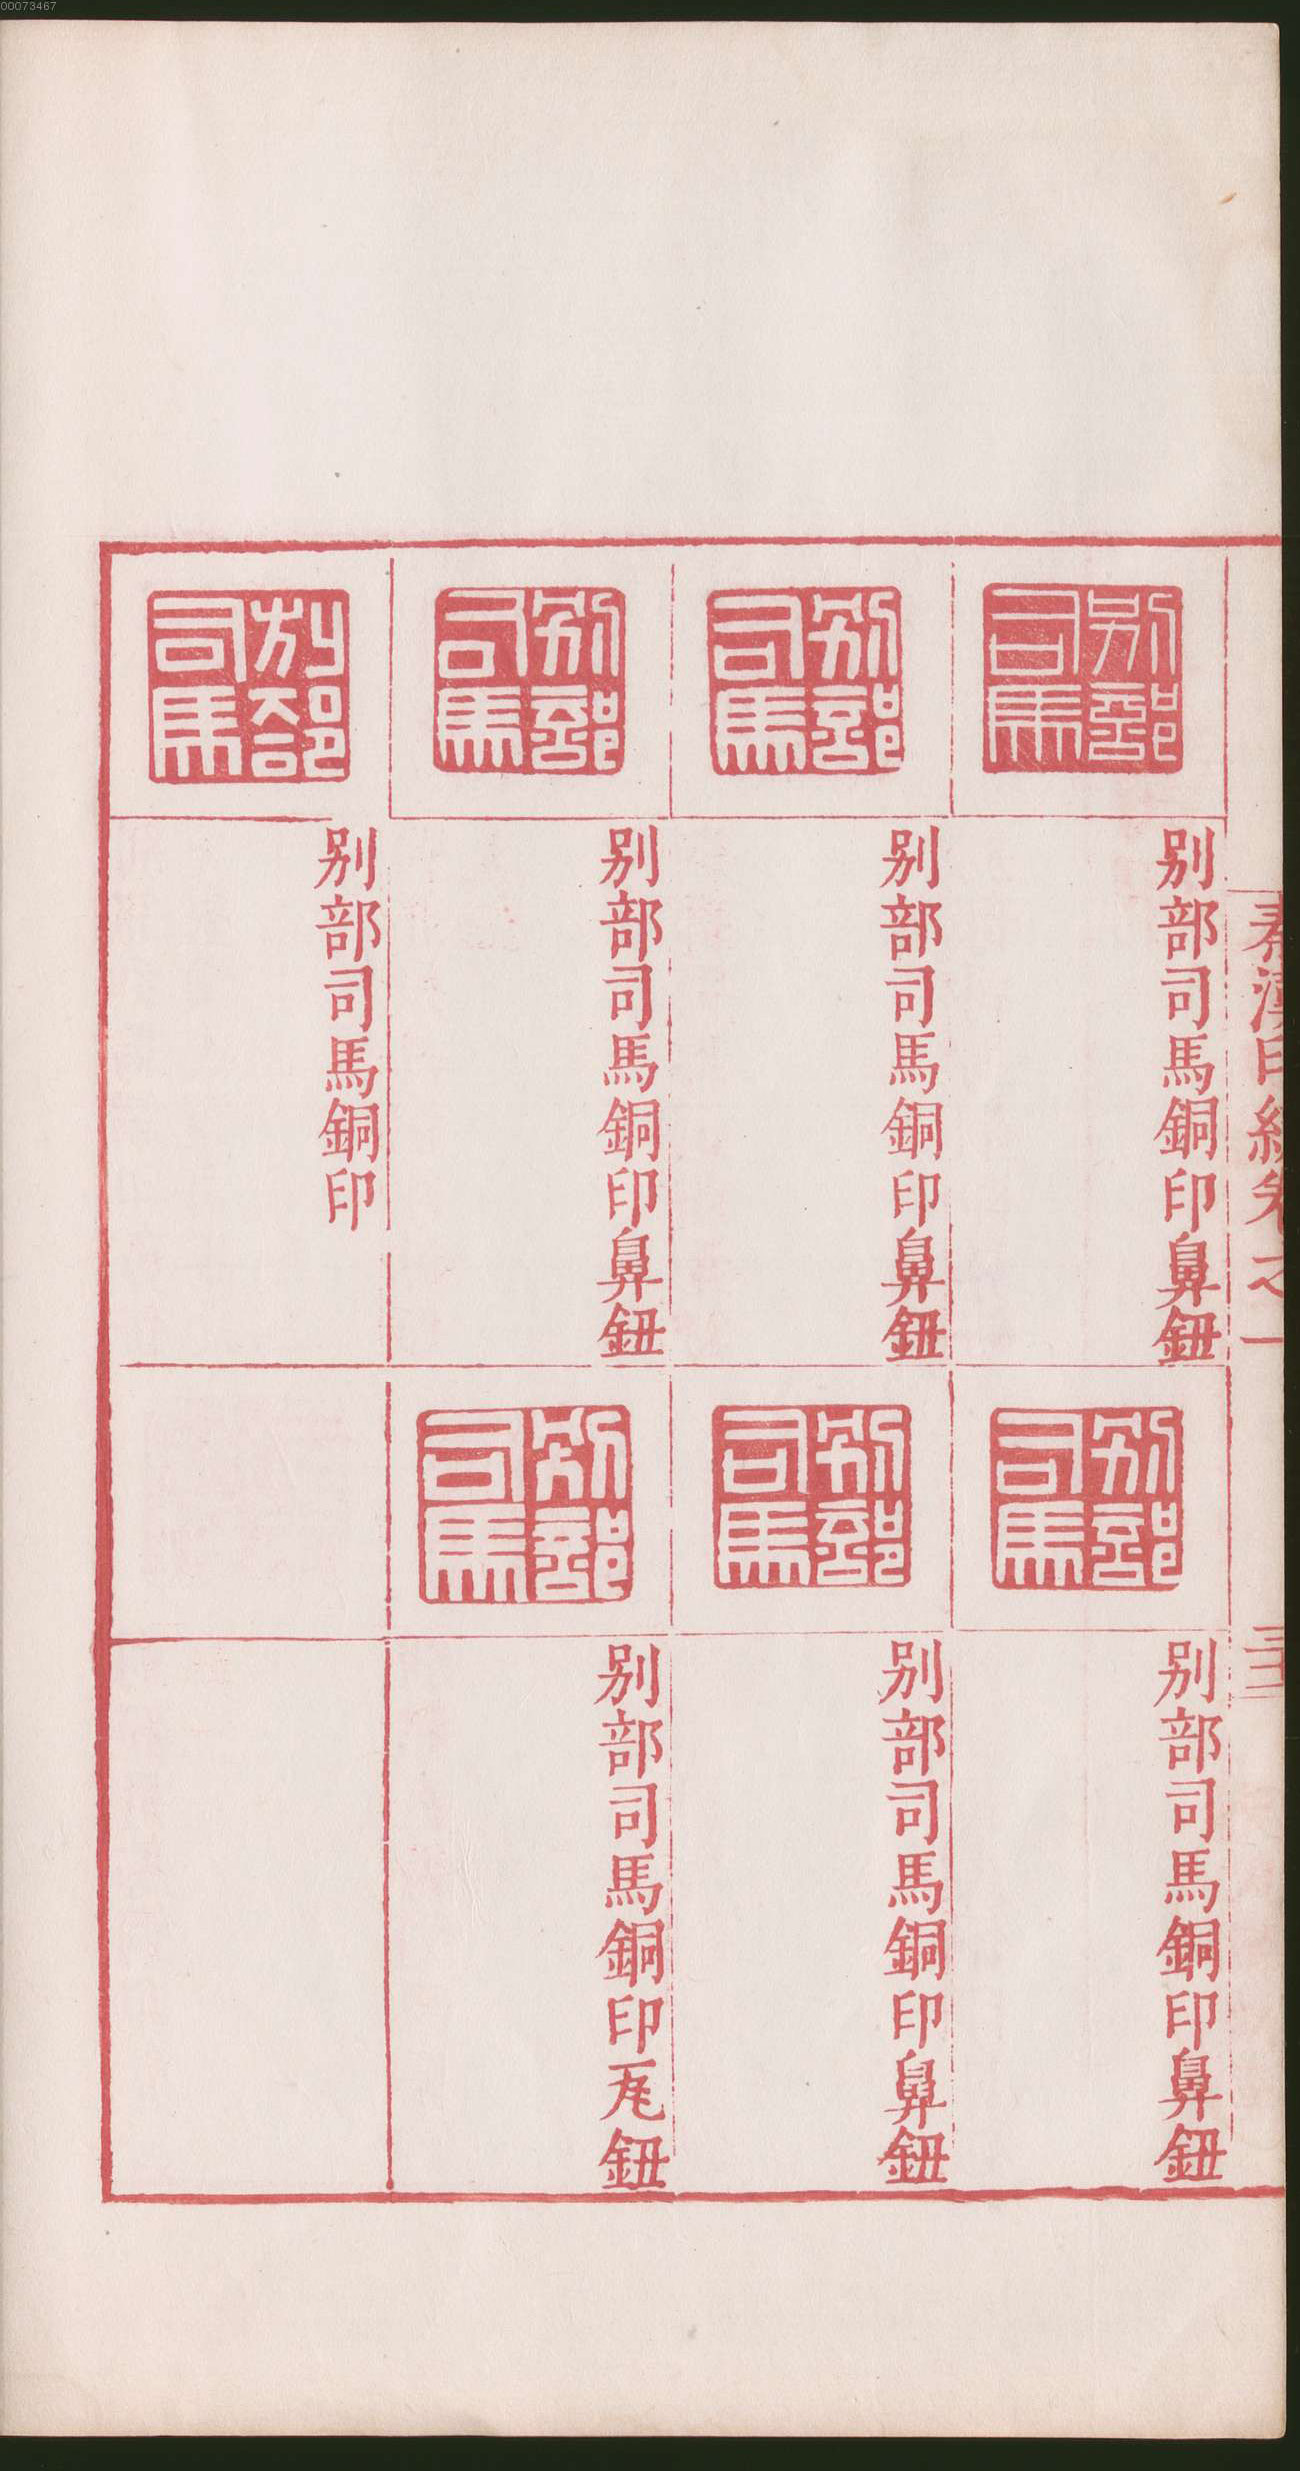 00073467
秦漢印統卷之一
三十二
别部司馬
别部司馬銅印鼻鈕
别部司馬
别部司馬銅印鼻鈕
别部司馬
别部司馬銅印鼻鈕
别部司馬
别部司馬銅印
别部司馬
别部司馬銅印鼻鈕
别部司馬
别部司馬銅印鼻鈕
别部司馬
别部司馬銅印瓦鈕